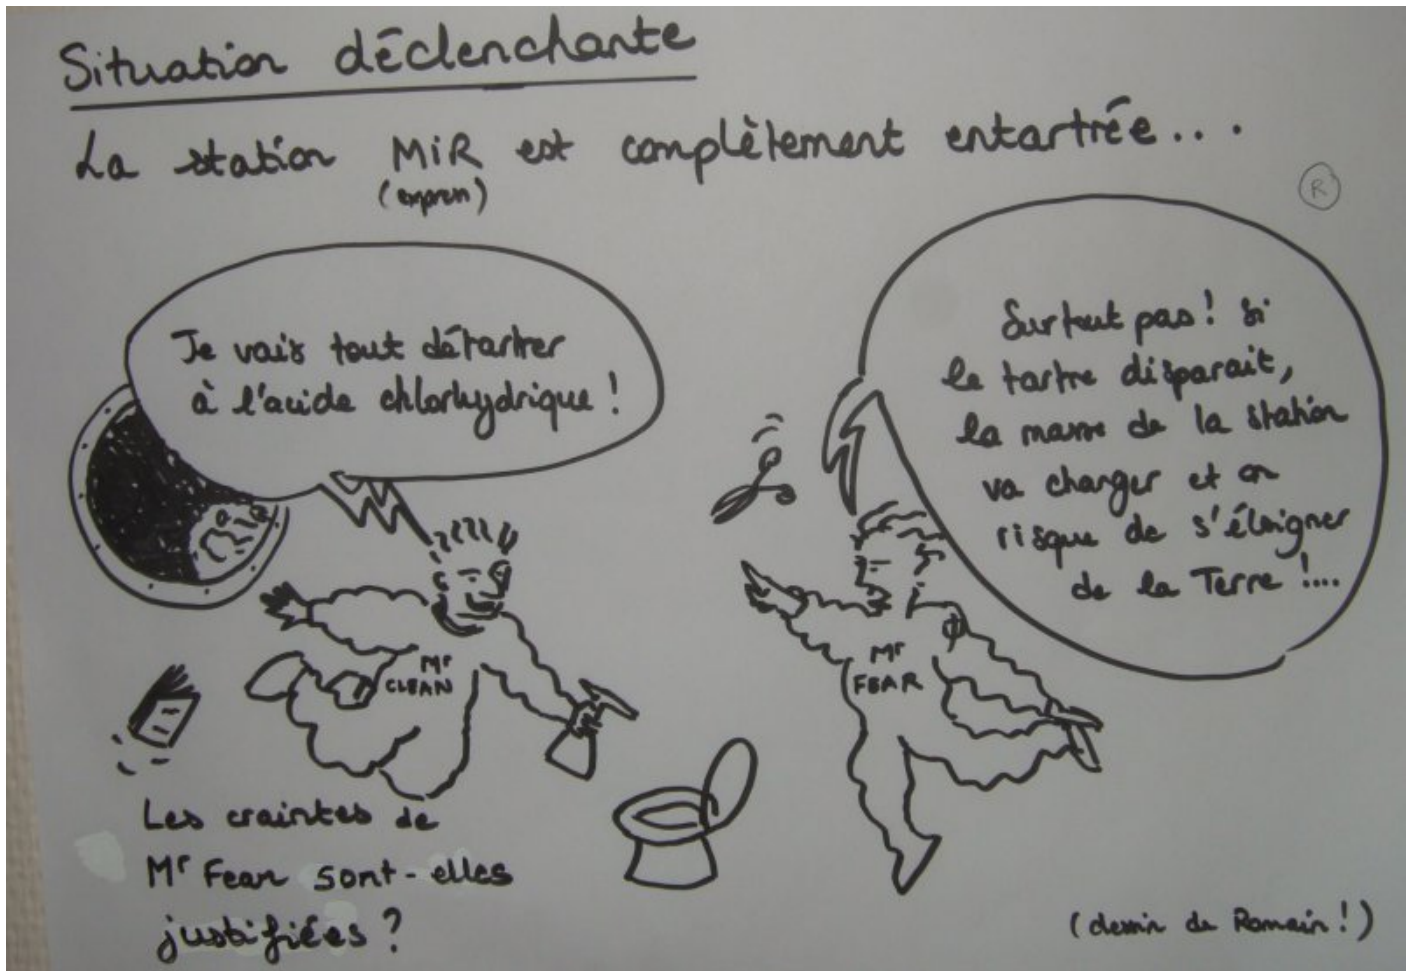 Situation déclenchante
La station MiR est complètement entartrée...
(expren)
R
Je vais tout détartrer
à l'acide chlorhydrique !
Surtout pas ! si
le tartre disparait,
la masse de la station
va changer et on
risque de s'éloigner
de la Terre !....
Mr
CLEAN
Mr
FEAR
Les craintes de
Mr Fear sont-elles
justifiées ?
(dessin de Romain !)